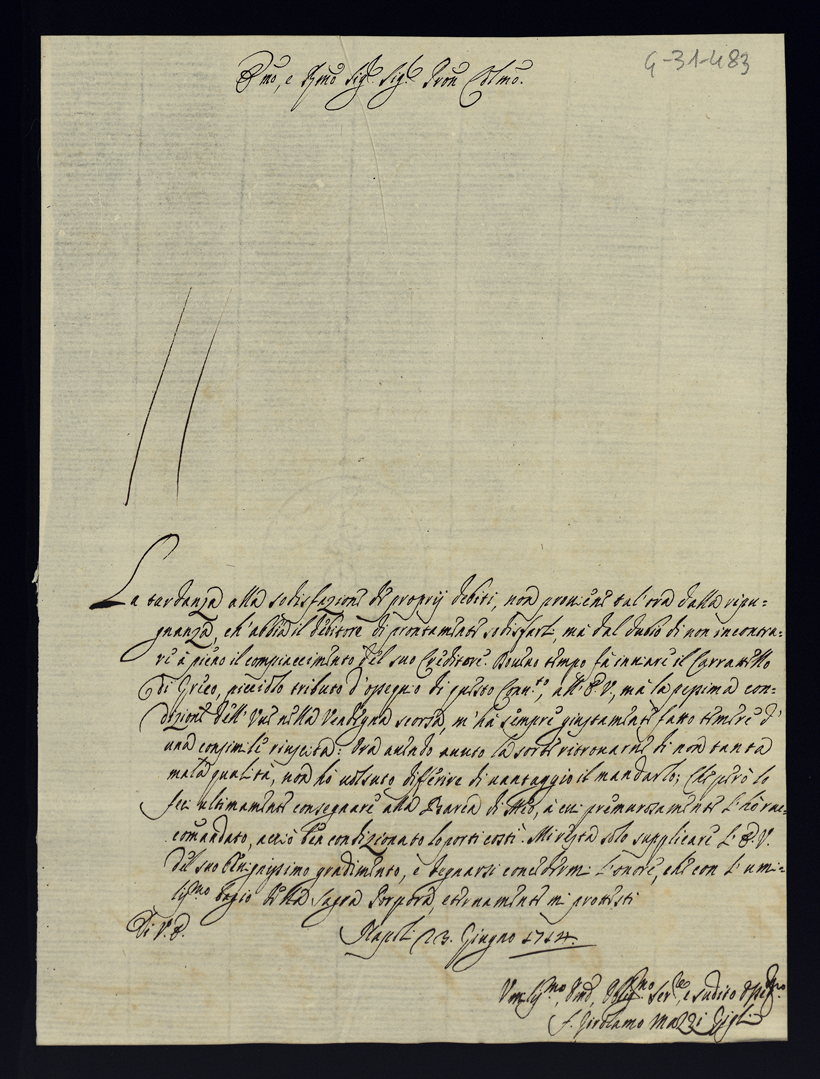 G-31-483
E.mo, e R.mo Sig.re Sig.re Pron Col.mo
La tardanza alla sodisfazione de proprij debiti, non proviene tal'ora dalla ripu=
gnanza, ch'abbia il debitore di prontamente sodisfare, ma dal dubio di non incontra=
re à pieno il compiaccimento del suo Creditore. Dovevo tempo fà inviare il Carratello
di Greco, picciolo tributo d'ossequio di questo Conv.to, all'E.V., mà la pessima con=
dizione dell'Uve nella Vendegna scorsa, m'hà sempre giustamente fatto temere d'
una consimile riuscita: Ora avendo avuto la sorte ritrovarne di non tanta
mala qualità, non hò voluto differire di vantaggio il mandarlo; Che però lo
feci ultimamente consegnare alla Barca di Meo, à cui premurosamente l'hò rac=
comandato, acciò ben condizionato lo porti costì. Mi resta solo supplicare l'E.V.
del suo Benignissimo gradimento, e degnarsi concedermi l'onore, che con l'umi=
liss.mo bagio della Sagra Porpora, eternamente mi protesti
Di V.E.
Napoli 23. Giugno 1714.
Umiliss.mo, Dmo, Obligmo Ser.re, e sudito osseq.mo
f. Girolamo Mazzi Gigli